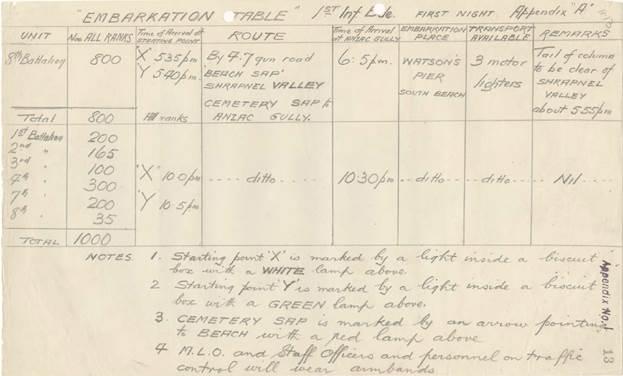 "EMBARKATION TABLE" 1ST Inf Bde. FIRST NIGHT Appendix "A"
UNIT Nos ALL RANKS Time of Arrival at STARTING POINT ROUTE Time of Arrival at ANZAC GULLY. EMBARKATION PLACE TRANSPORT AVAILABLE REMARKS
8th Battalion 800 "X" 535pm By 4.7 gun road 6:5pm. WATSON'S 3 motor Tail of column
Y 540pm. BEACH SAP' PIER lighters to be clear of
SHRAPNEL VALLEY SOUTH BEACH SHRAPNEL
CEMETERY SAP to VALLEY
ANZAC GULLY. about 555pm
Total 800 All ranks
1st Battalion 200
2nd " 165
3rd " 100
4th " 300 "X" 10.0pm ---- ditto ---- 10.30pm -- ditto -- -- ditto -- -- Nil --
7th " 200 "Y 10.5pm
8th " 35
TOTAL 1000
NOTES 1. Starting point "X" is marked by a light inside a biscuit
box with a WHITE lamp above.
2 Starting point 'Y' is marked by a light inside a biscuit
box with a GREEN lamp above.
3. CEMETERY SAP is marked by an arrow pointing
to BEACH with a red lamp above
4 M.L.O. and Staff Officers and personnel on traffic
control will wear armbands
Appendix No.1
13